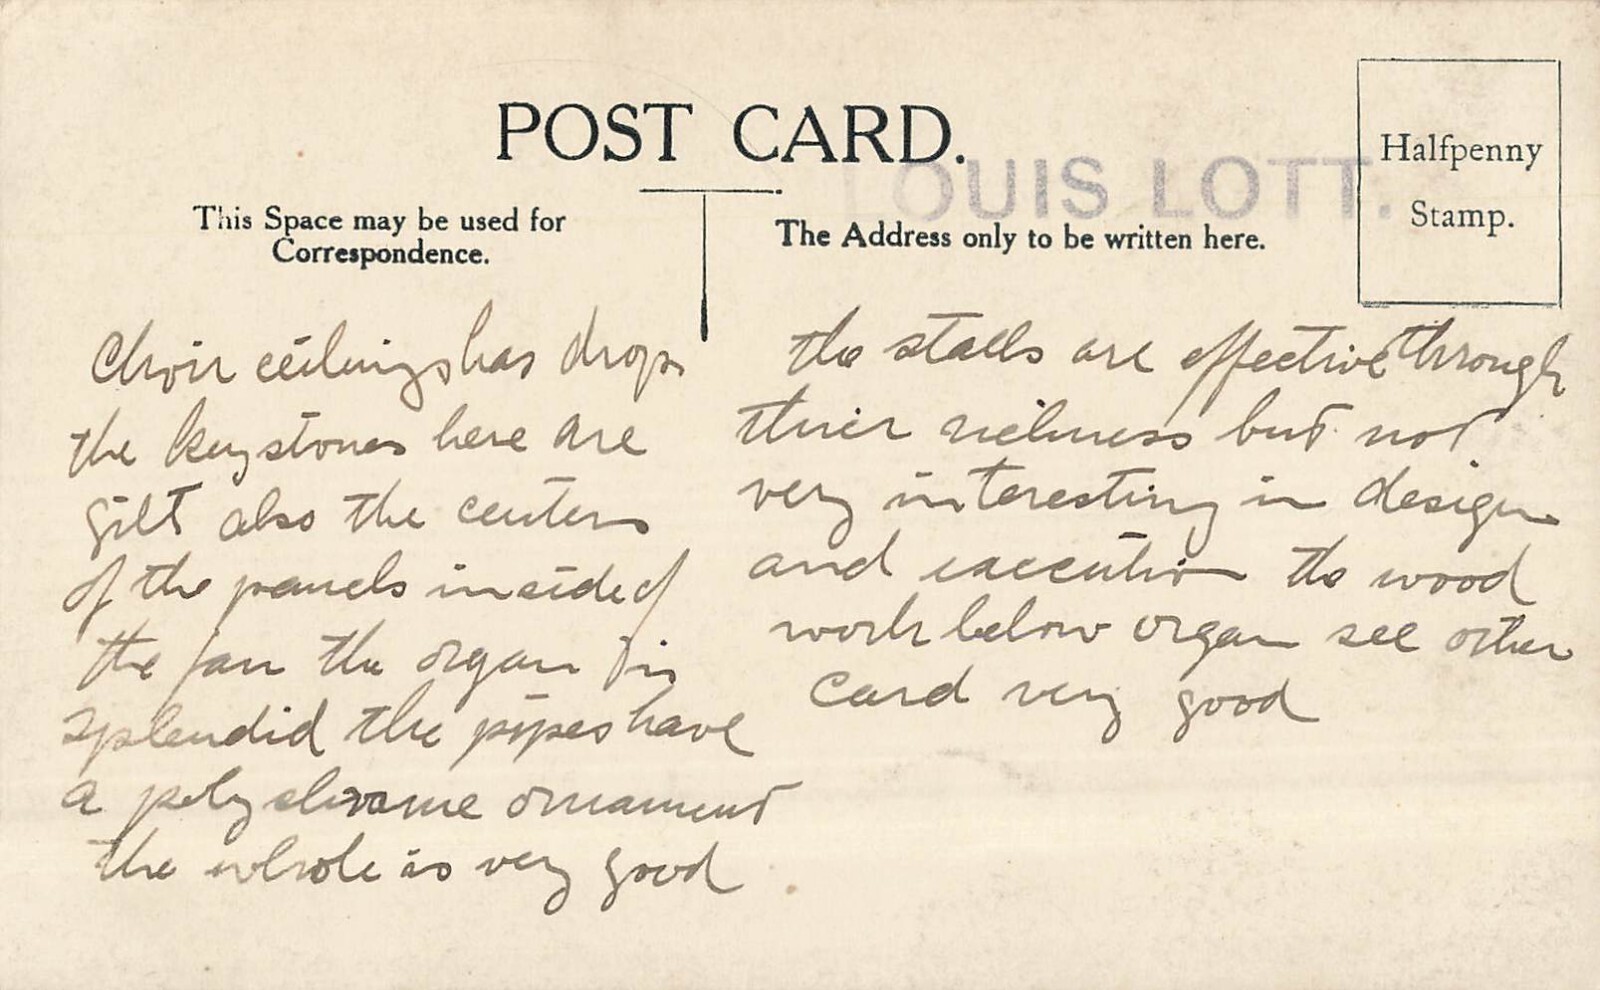 POST CARD.
LOUIS LOTT.
Halfpenny
Stamp.
This Space may be used for
Correspondence.
The Address only to be written here.
Choir ceilings has drops
the keystones here are
gilt also the centers
of the panels inside of
the fan the organ is
splendid the pipes have
a polychrome ornament
the whole is very good
the stalls are effective through
their richness but not
very interesting in design
and execution the wood
work below organ see other
card very good